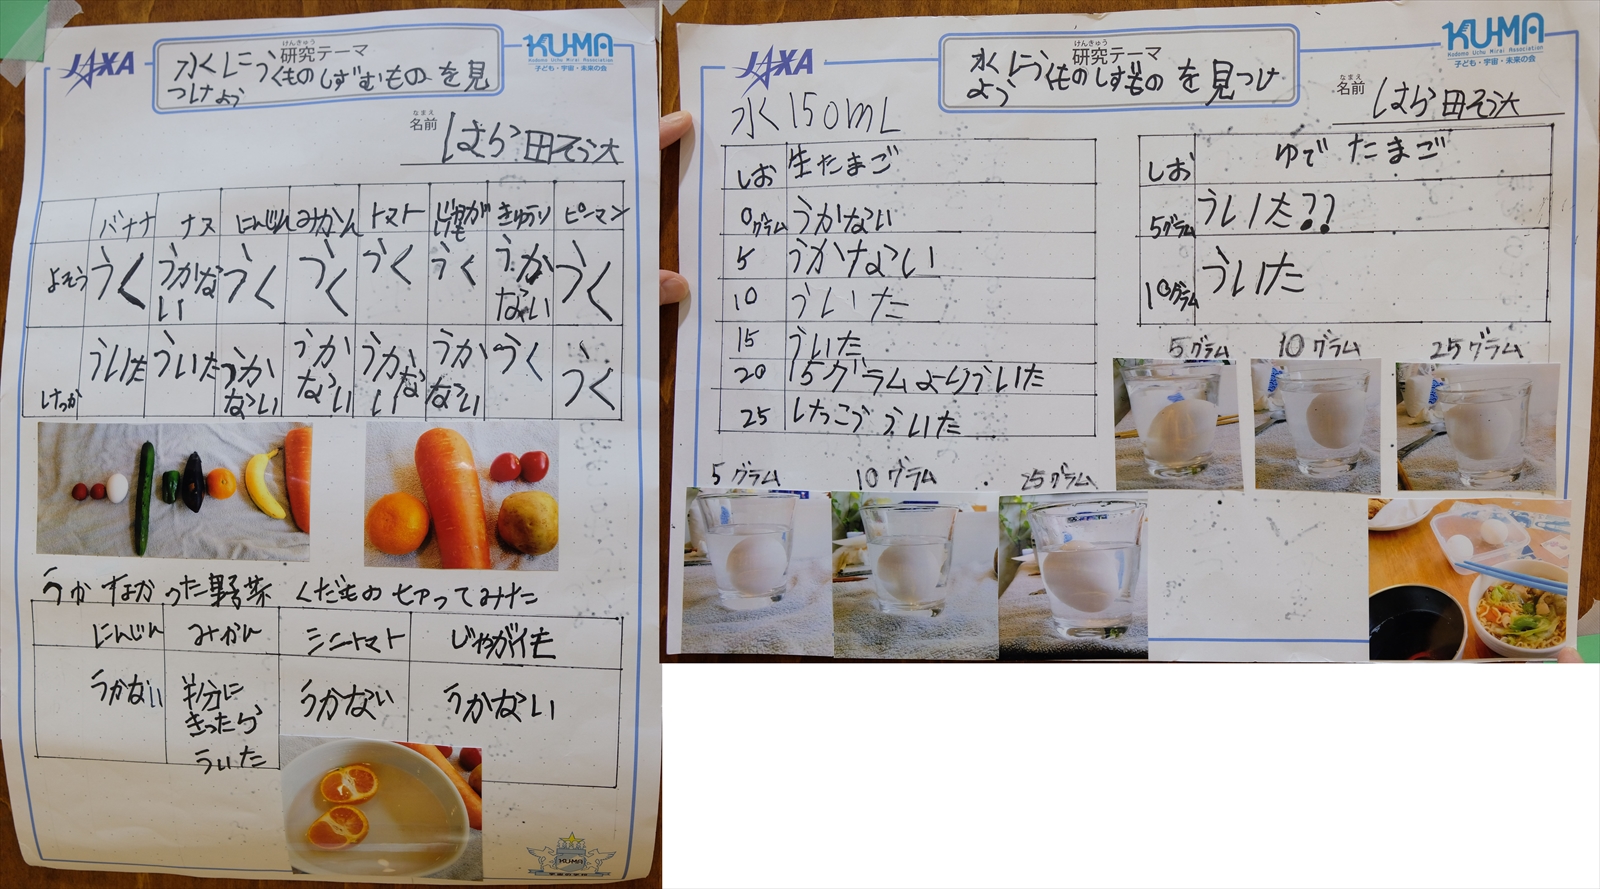 JAXA
けんきゅう
研究テーマ
KU-MA
子ども・宇宙・未来の会
水くにうくものしずむものを見
つけよう
なまえ
名前
はら田そう大
バナナ ナス にんじん みかん トマト じゃがいも きゅうり ピーマン
よそう うく うかない うく うく うく うく うかない うく
けっか ういた ういた うかない うかない うかない うかない うく うく
うかなかった野菜 くだもの切ってみた
にんじん みかん ミニトマト じゃがイモ
うかない 半分にきったらういた うかない うかない
KU-MA
JAXA
けんきゅう
研究テーマ
KU-MA
Kodomo Uchu Mirai Association
子ども・宇宙・未来の会
水くにうくものしずものを見つけ
よう
なまえ
名前
はら田そう大
水く150mL
しお 生たまご
0グラム うかない
5 うかなない
10 ういた
15 ういた
20 15グラムよりういた
25 けっこうういた
しお ゆでたまご
5グラム ういた??
10グラム ういた
5グラム 10グラム 25グラム
5グラム 10グラム 25グラム